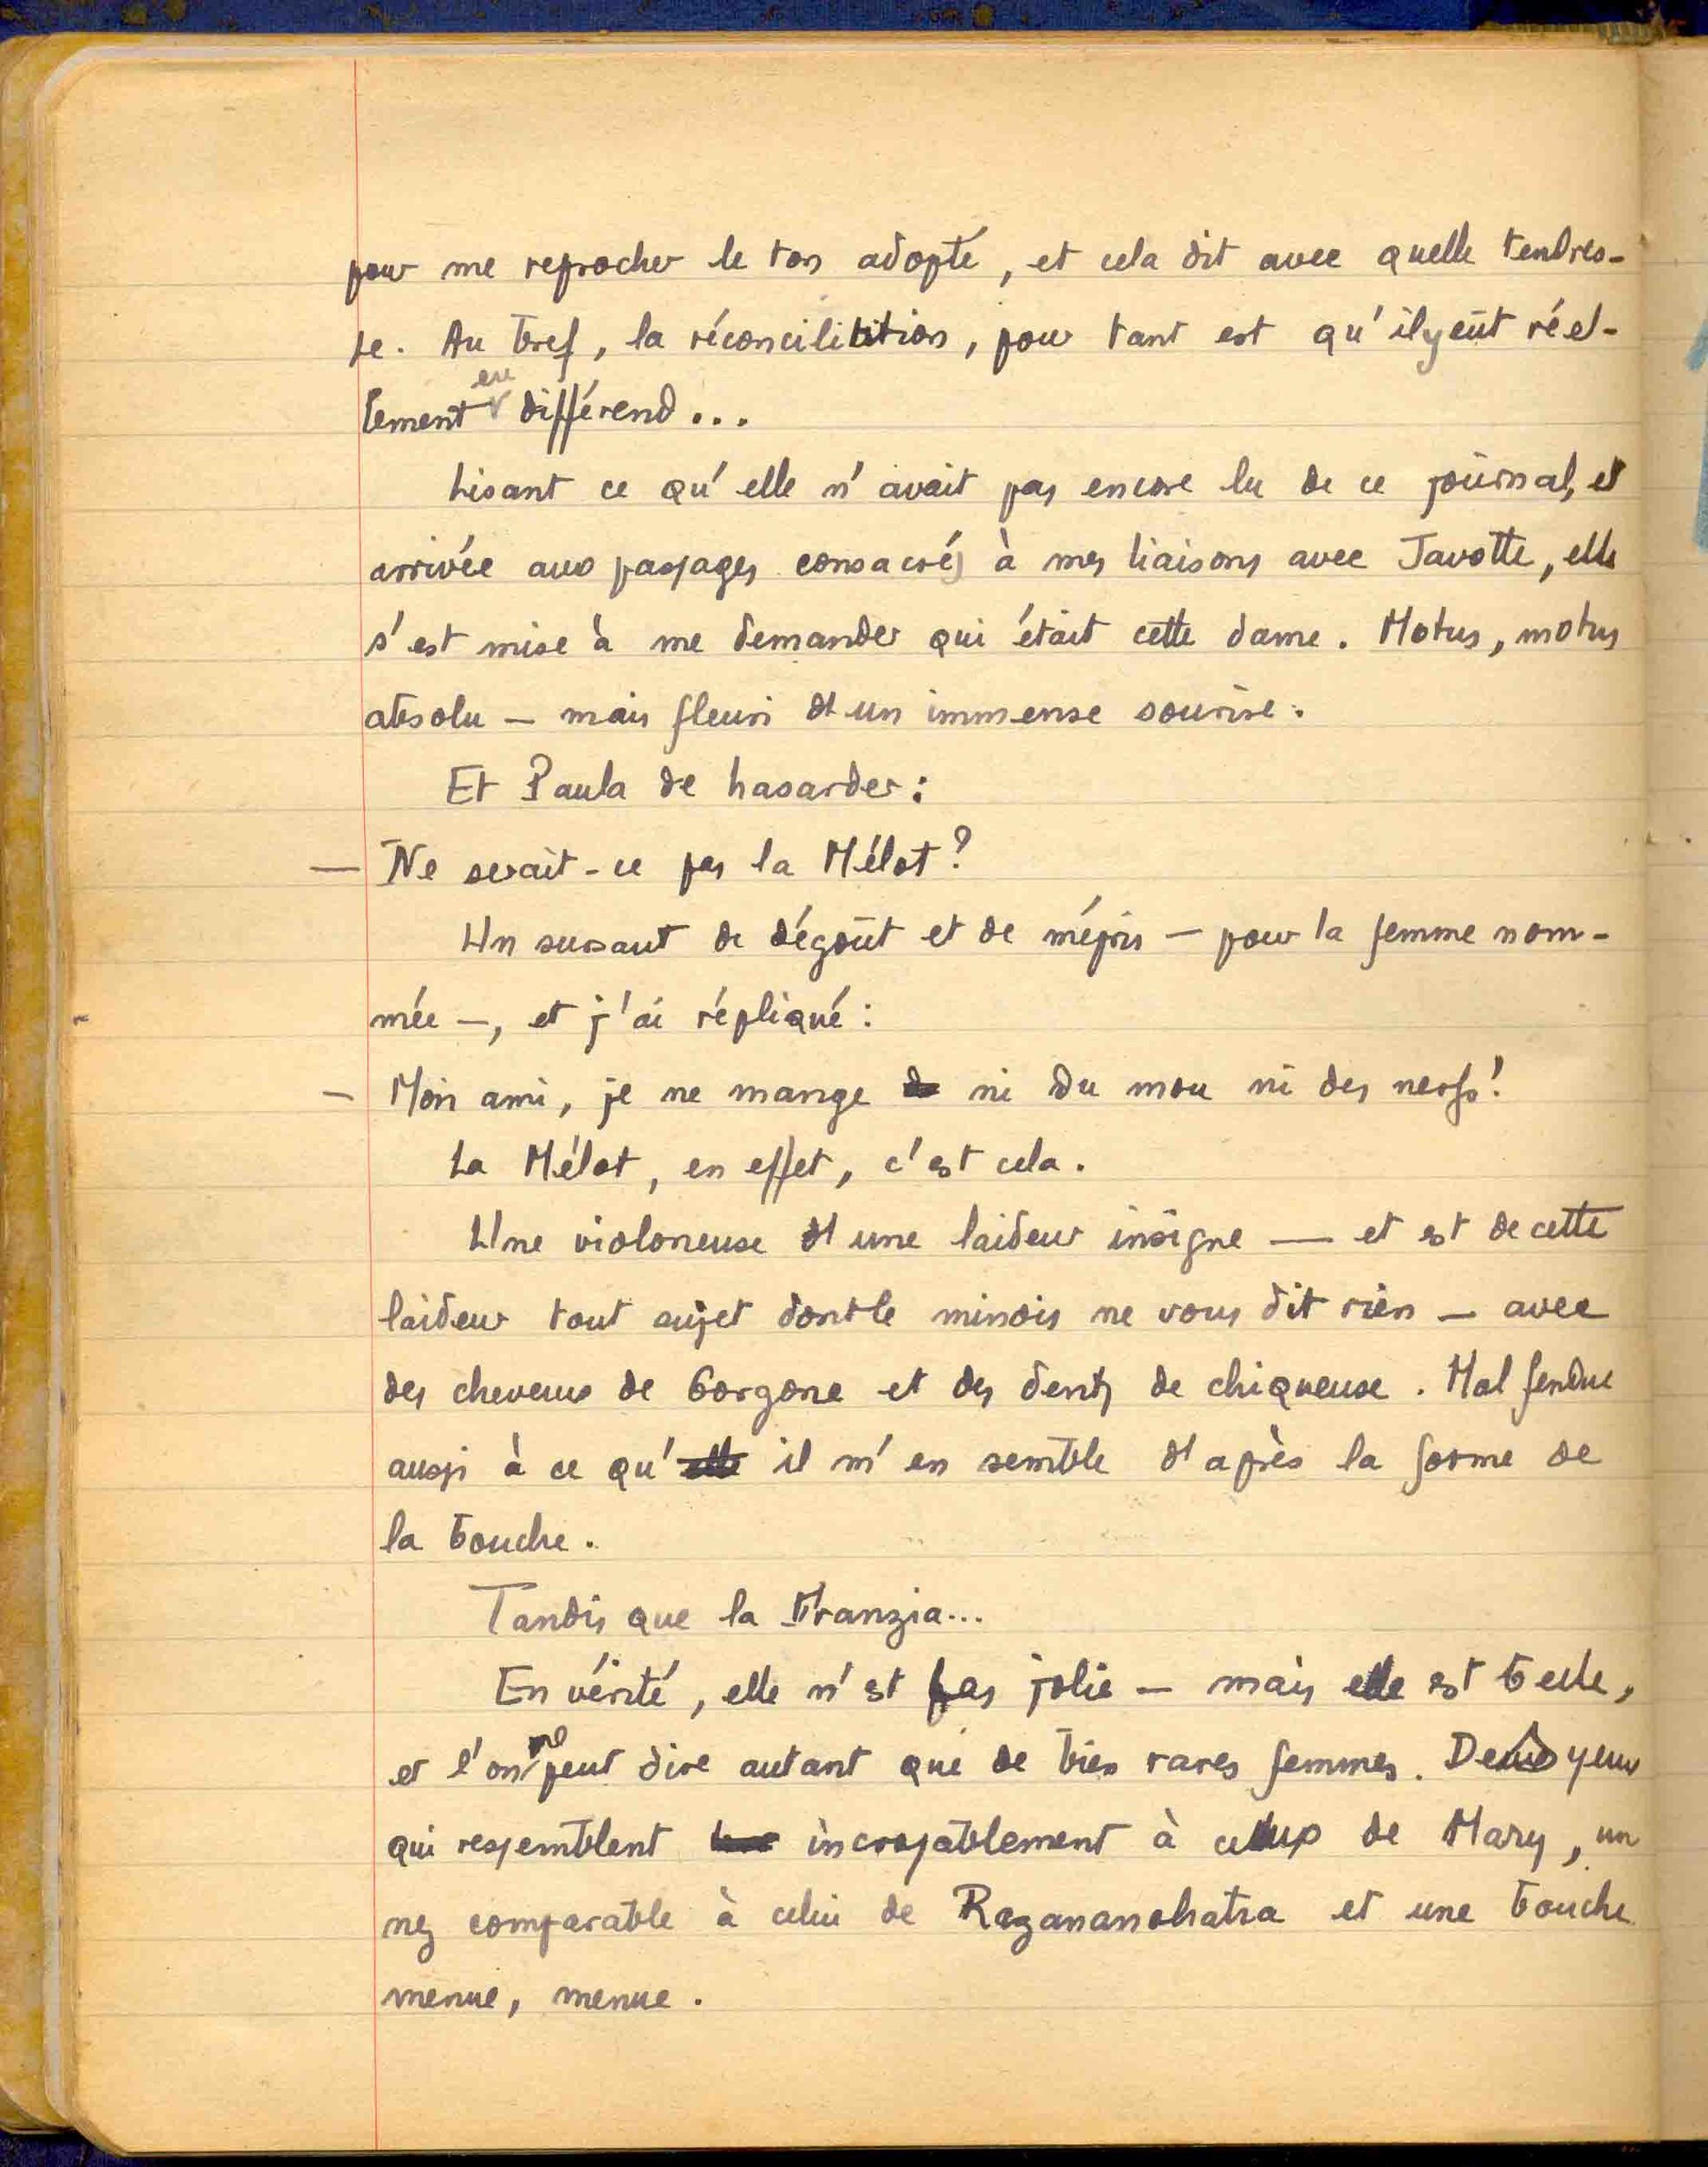 pour me reprocher le ton adopté, et cela dit avec quelle tendres-
se. Au bref, la réconciliation, pour tant est qu'il y eût réel-
lement eu différend...
Lisant ce qu'elle n'avait pas encore lu de ce journal, et
arrivée aux passages consacrés à mes liaisons avec Javotte, elle
s'est mise à me demander qui était cette dame. Motus, motus
absolu — mais fleuri d'un immense sourire.
Et Paula de hasarder :
— Ne serait-ce pas la Mélot ?
Un sursaut de dégoût et de mépris — pour la femme nom-
mée —, et j'ai répliqué :
— Mon ami, je ne mange ni du mou ni des nerfs !
La Mélot, en effet, c'est cela.
Une violoneuse d'une laideur insigne — et est de cette
laideur tout sujet dont le minois ne vous dit rien — avec
des cheveux de Gorgone et des dents de chiqueuse. Mal fendue
aussi à ce qu'il m'en semble d'après la forme de
la bouche.
Tandis que la Franzia...
En vérité, elle n'est pas jolie — mais elle est belle,
et l'on ne peut dire autant que de bien rares femmes. Deux yeux
qui ressemblent incroyablement à ceux de Mary, un
nez comparable à celui de Razananohatra et une bouche
menue, menue.